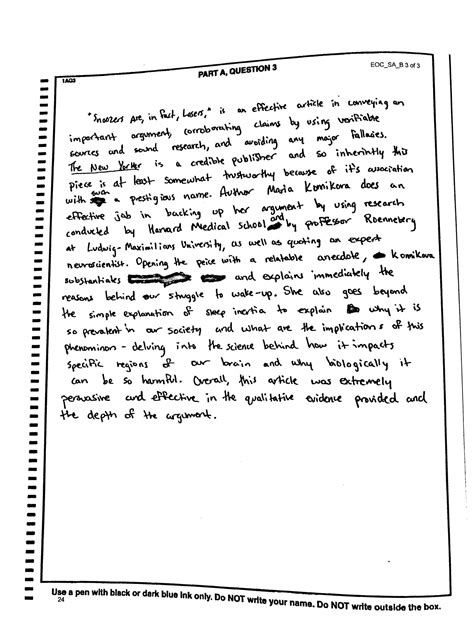 PART A, QUESTION 3
EOC_SA_B 3 of 3
1AQ3
"Snoozers Are, in Fact, Losers," is an effective article in conveying an
important argument, corroborating claims by using verifiable
sources and sound research, and avoiding any major fallacies.
The New Yorker is a credible publisher and so inherintly this
piece is at least somewhat trustworthy because of it's association
with such a prestigious name. Author Maria Konnikova does an
effective job in backing up her argument by using research
conducted by Harvard Medical School and by professor Roenneberg
at Ludwig-Maximilians University, as well as quoting an expert
neuroscientist. Opening the peice with a relatable anecdote, Konnikova
substantiates and explains immediately the
reasons behind our struggle to wake-up. She also goes beyond
the simple explanation of sleep inertia to explain why it is
so prevalent in our society and what are the implications of this
phenominon - delving into the science behind how it impacts
specific regions of our brain and why biologically it
can be so harmful. Overall, this article was extremely
persuasive and effective in the qualitative evidence provided and
the depth of the argument.
Use a pen with black or dark blue ink only. Do NOT write your name. Do NOT write outside the box.
24